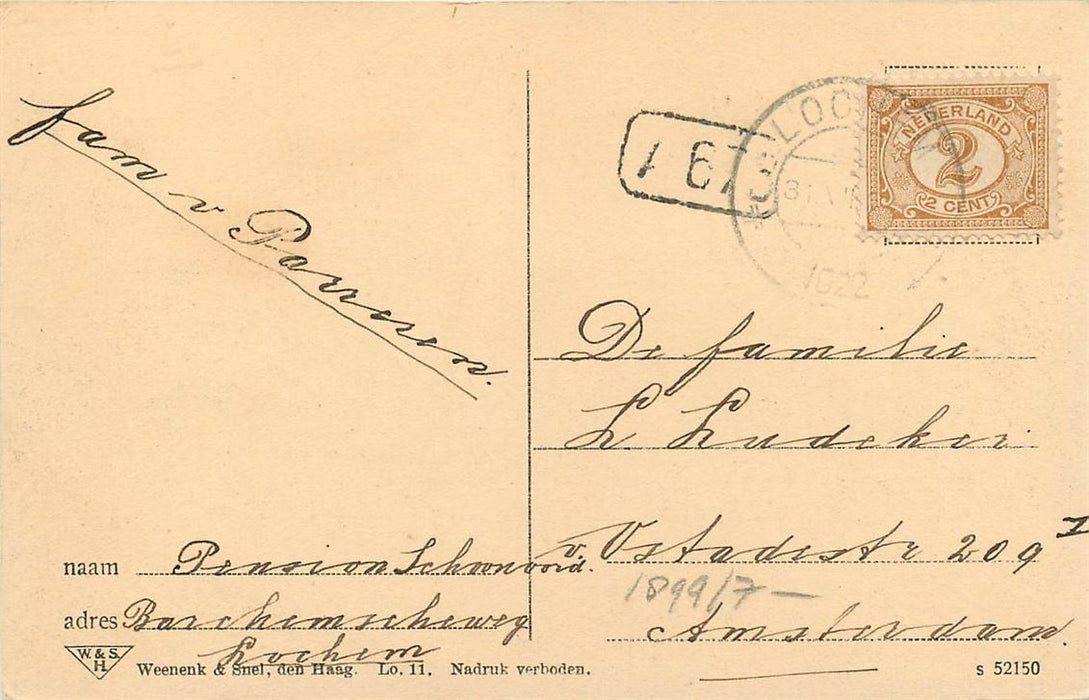 fam v Parreren.
1 67
LOCHEM
31 VII
1922
NEDERLAND
2
2 CENT
De familie
L Ludeker.
v. Ostadestr 209 I
1899/7 —
Amsterdam.
naam Pension Schoonoord.
adres Barchemscheweg
Lochem
W. & S.
H
Weenenk & Snel, den Haag. Lo. 11. Nadruk verboden.
s 52150